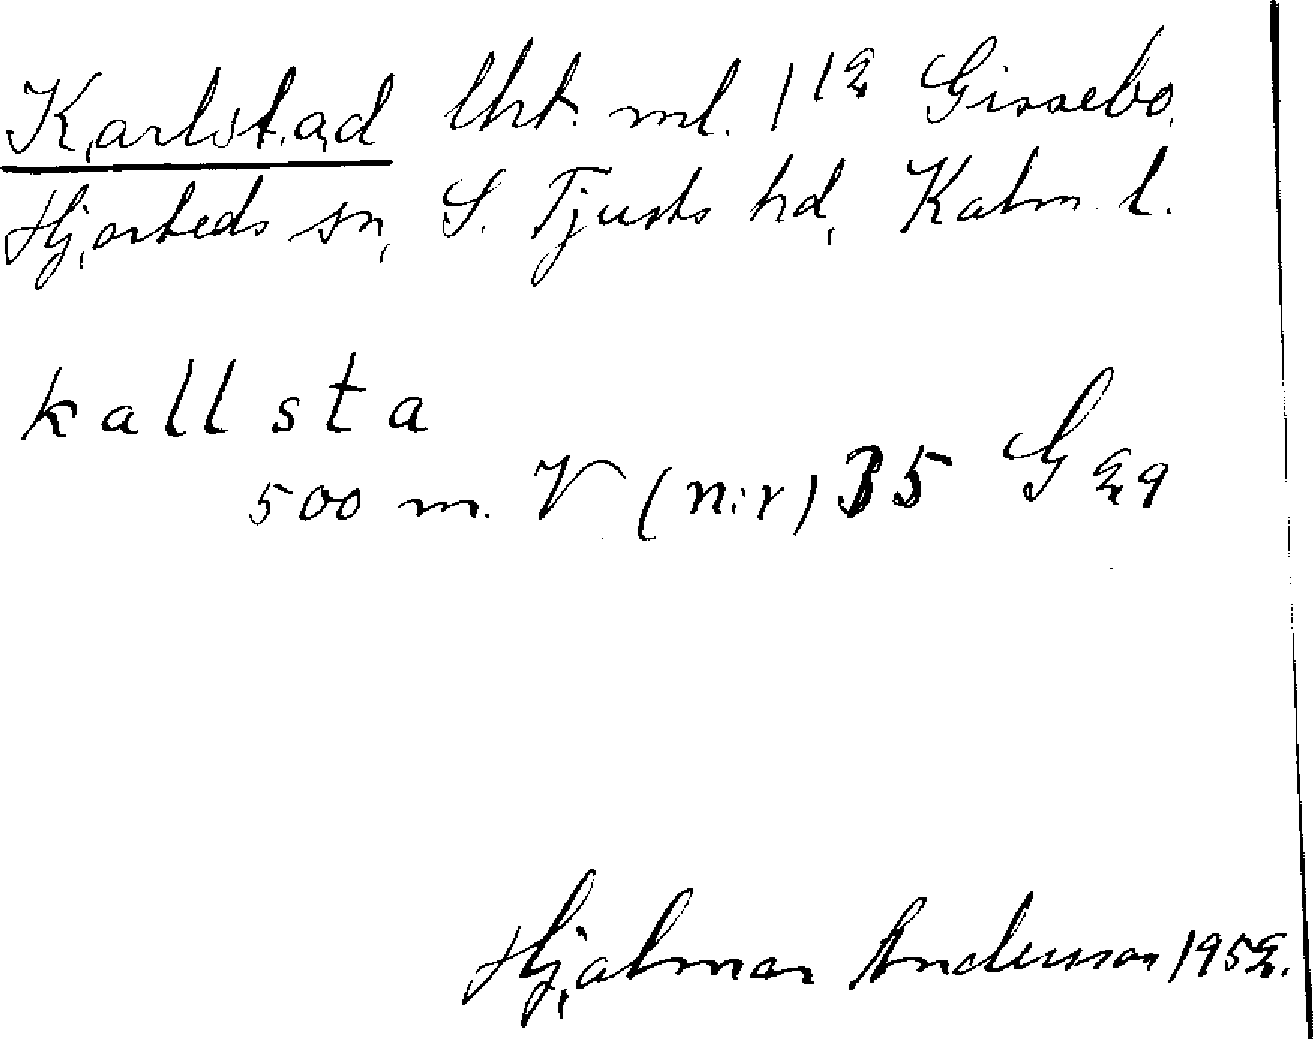 Karlstad lht. ml. 1¹² Gissebo,
Hjorteds sn, S. Tjusts hd, Kalm. l.
kallsta
500 m. V (n:r) 35 G 29
Hjalmar Andersson 1952.